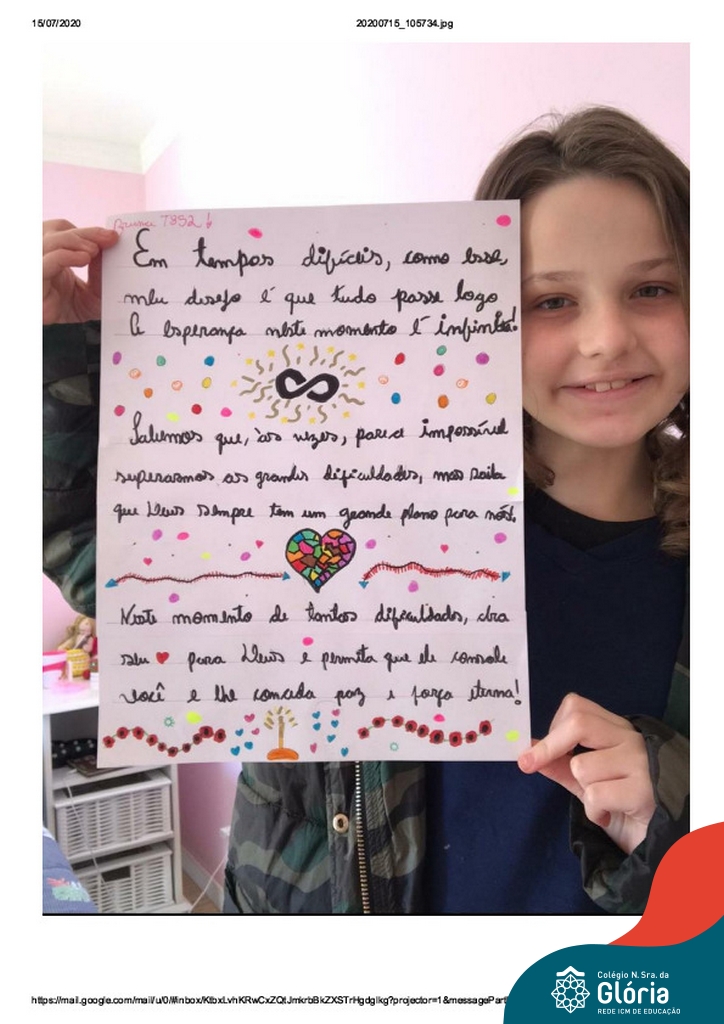 15/07/2020 20200715_105734.jpg
T852
Em tempos difíceis, como esse,
meu desejo é que tudo passe logo
A esperança neste momento é infinita!
Sabemos que, às vezes, parece impossível
superarmos as grandes dificuldades, mas saiba
que Deus sempre tem um grande plano para nós!
Neste momento de tantas dificuldades, abra
seu ❤ para Deus e permita que ele console
você e lhe conceda paz e força eterna!
Colégio N. Sra. da
Glória
REDE ICM DE EDUCAÇÃO